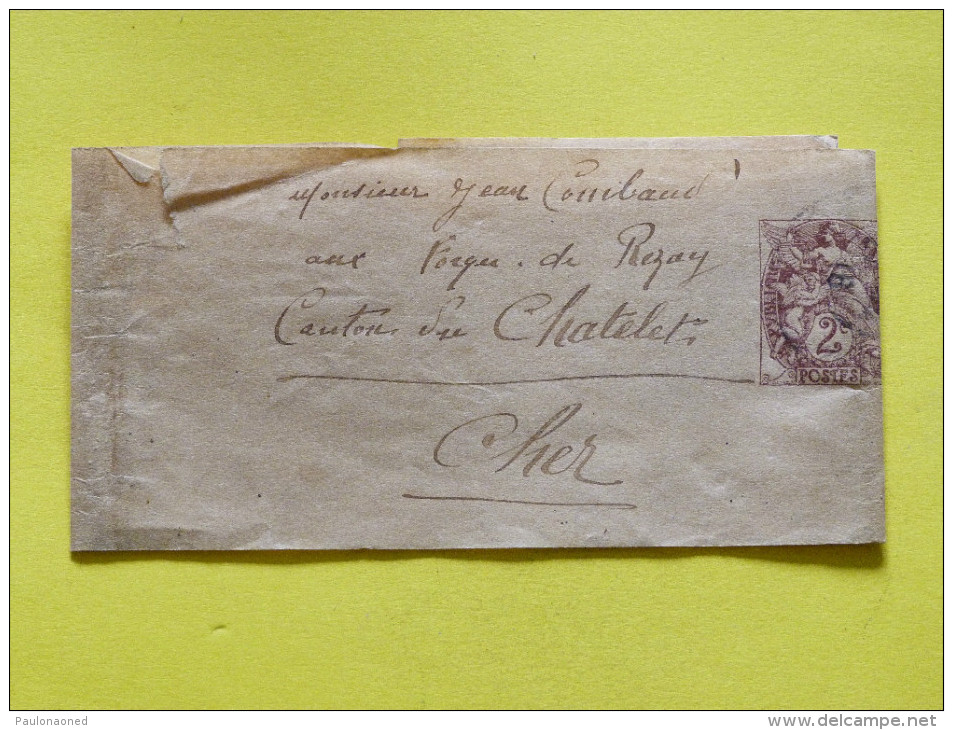 Monsieur Jean Combaud
aux Forges de Rezay
Canton du Chatelet
Cher
2c
POSTES
Paulonaoned
www.delcampe.net